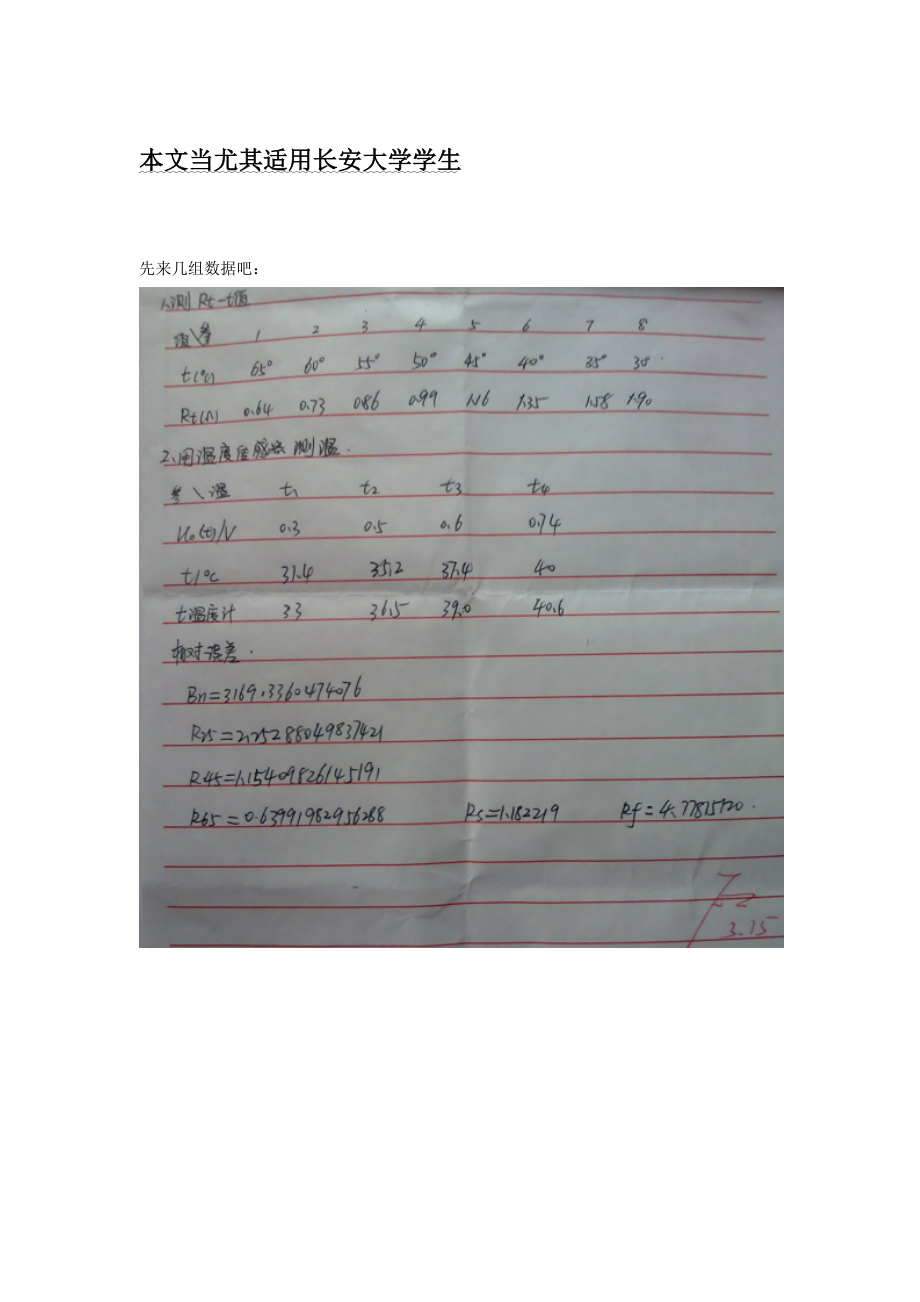 本文当尤其适用长安大学学生
先来几组数据吧：
1、测 Rt-t值
1 2 3 4 5 6 7 8
t(℃) 65° 60° 55° 50° 45° 40° 35° 30°
Rt(Ω) 0.64 0.73 0.86 0.99 1.16 1.35 1.58 1.90
2、用温度传感器测温.
参\温 t1 t2 t3 t4
U0(t)/V 0.3 0.5 0.6 0.74
t/℃ 31.4 35.2 37.4 40
t温度计 33 36.5 39.0 40.6
相对误差.
Bn=3169.3360474076
R25=2.25288049837421
R45=1.15409826145191
R65=0.63991982956288 Rs=1.182219 Rf=4.77815720.
3.15